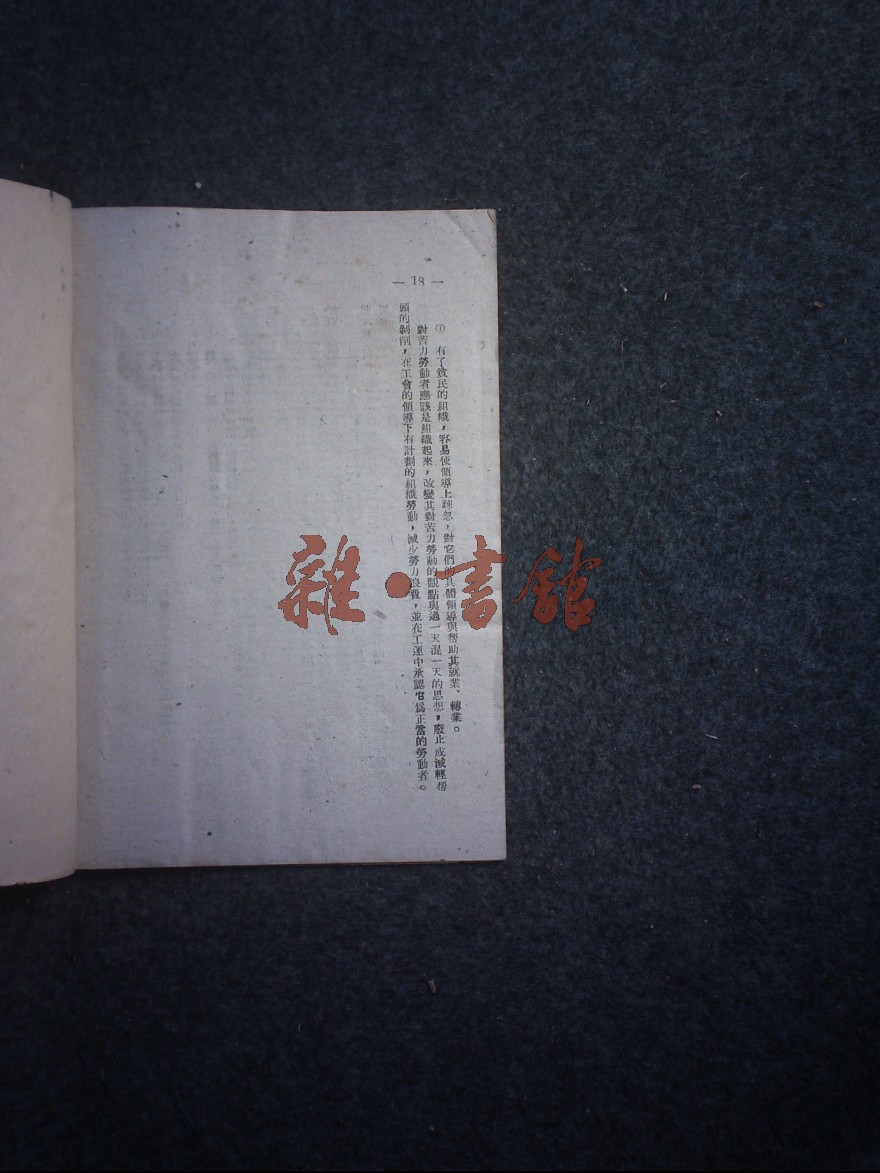 — 18 —
④ 有了救民的組織，容易使領導上疎忽，對它們的具體領導與帮助其就業、轉業。
對苦力勞動者應該是組織起來，改變其對苦力勞動的觀點與過一天混一天的思想，廢止或减輕帮
頭的剝削，在工會的領導下有計劃的組織勞動，减少勞力浪費，並在工運中承認它爲正當的勞動者。
雜·書館